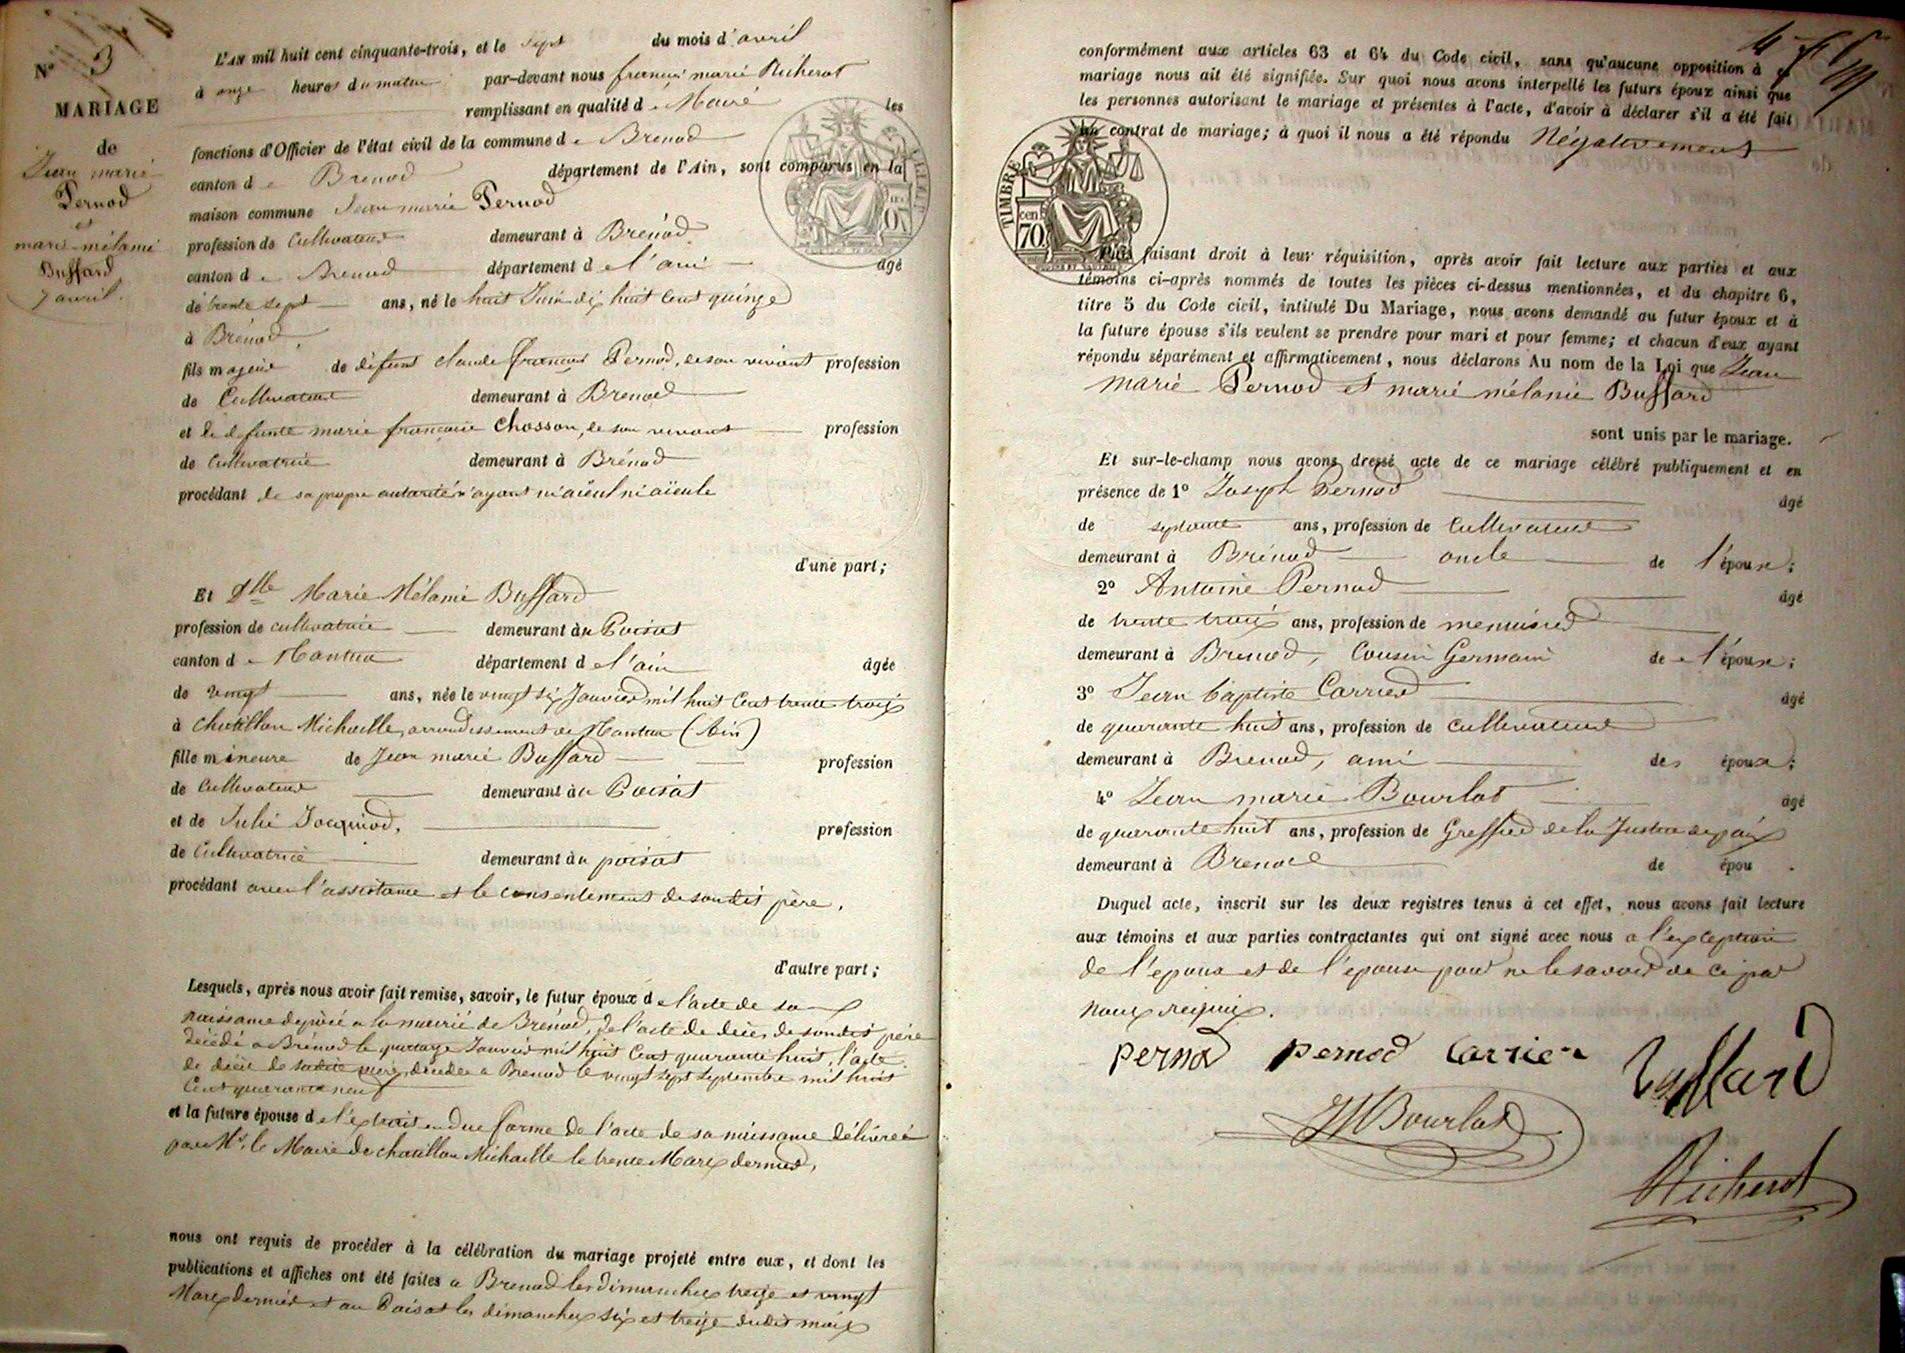 N° 3
MARIAGE
de
Jean marie
Pernod
et
marie mélanie
Buffard
7 avril.
L'AN mil huit cent cinquante-trois, et le sept du mois d'avril
à onze heures du matin par-devant nous françois marie Richerot
remplissant en qualité de Maire les
fonctions d'Officier de l'état civil de la commune de Brenod
canton de Brenod département de l'Ain, sont comparus en la
maison commune Jean marie Pernod
profession de Cultivateur demeurant à Brénod
canton de Brenod département de l'ain âgé
de trente sept ans, né le huit Juin dix huit cent quinze
à Brénod.
fils majeur de défunt claude françois Pernod, de son vivant profession
de Cultivateur demeurant à Brenod
et de defunte marie françoise Chosson, de son vivant profession
de Cultivatrice demeurant à Brénod
procédant de sa propre autorité n'ayant ni aïeul ni aïeule
d'une part;
Et Dlle Marie Mélanie Buffard
profession de cultivatrice demeurant au Poisat
canton de Nantua département de l'ain âgée
de vingt ans, née le vingt six Janvier mil huit Cent trente trois
à chatillon Michaille, arrondissement de Nantua (Ain)
fille mineure de Jean marie Buffard profession
de Cultivateur demeurant au Poisat
et de Julie Jacquiod, profession
de Cultivatrice demeurant au poisat
procédant avec l'assistance et le consentement de son dit père.
d'autre part;
Lesquels, après nous avoir fait remise, savoir, le futur époux de l'acte de sa
naissance déposé a la mairie de Brénod, de l'acte de décès de son dit père
décédé a Brénod le quatorze Janvier mil huit Cent quarante huit, l'acte
de décès de sa dite mere, décédée a Brenod le vingt sept septembre mil huit
Cent quarante neuf
et la future épouse de l'extrait en due forme de l'acte de sa naissance délivrée
par Mr. le Maire de chatillon Michaille le trente Mars dernier,
nous ont requis de procéder à la célébration du mariage projeté entre eux, et dont les
publications et affiches ont été faites a Brenod les dimanches treize et vingt
Mars dernier et au Poisat les dimanches six et treize dudit mois
conformément aux articles 63 et 64 du Code civil, sans qu'aucune opposition à ce
mariage nous ait été signifiée. Sur quoi nous avons interpellé les futurs époux ainsi que
les personnes autorisant le mariage et présentes à l'acte, d'avoir à déclarer s'il a été fait
un contrat de mariage; à quoi il nous a été répondu Négativement
TIMBRE
cen
70
Puis faisant droit à leur réquisition, après avoir fait lecture aux parties et aux
témoins ci-après nommés de toutes les pièces ci-dessus mentionnées, et du chapitre 6,
titre 5 du Code civil, intitulé Du Mariage, nous avons demandé au futur époux et à
la future épouse s'ils veulent se prendre pour mari et pour femme; et chacun d'eux ayant
répondu séparément et affirmativement, nous déclarons Au nom de la Loi que Jean
marie Pernod et marie mélanie Buffard
sont unis par le mariage.
Et sur-le-champ nous avons dressé acte de ce mariage célébré publiquement et en
présence de 1° Joseph Pernod âgé
de septante ans, profession de Cultivateur
demeurant à Brénod oncle de l'époux;
2° Antoine Pernod âgé
de trente trois ans, profession de menuisier
demeurant à Brenod, Cousin Germain de l'époux;
3° Jean baptiste Carrier âgé
de quarante huit ans, profession de cultivateur
demeurant à Brenod, ami des époux;
4° Jean marie Bourlot âgé
de quarante huit ans, profession de Greffier de la Justice de paix
demeurant à Brenod de épou .
Duquel acte, inscrit sur les deux registres tenus à cet effet, nous avons fait lecture
aux témoins et aux parties contractantes qui ont signé avec nous a l'exception
de l'epoux et de l'epouse pour ne le savoir de ce par
nous requis.
pernod pernod Carrier Buffard
JM Bourlot
Richerot